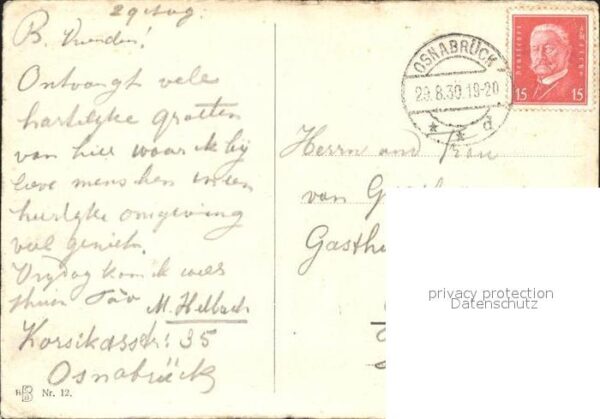 29 Aug.
B. Vrienden!
Ontvangt vele
hartlijke groeten
van hier waar ik bij
lieve menschen in een
heerlijke omgeving
veel geniet.
Vrijdag kom ik weer
thuis
M. Helbach
Korsikastr: 35
Osnabrück
Nr. 12.
OSNABRÜCK
29.8.30.19-20
* * d
Deutsches Reich
15 15
Herrn und Frau
van
Gasth
privacy protection
Datenschutz